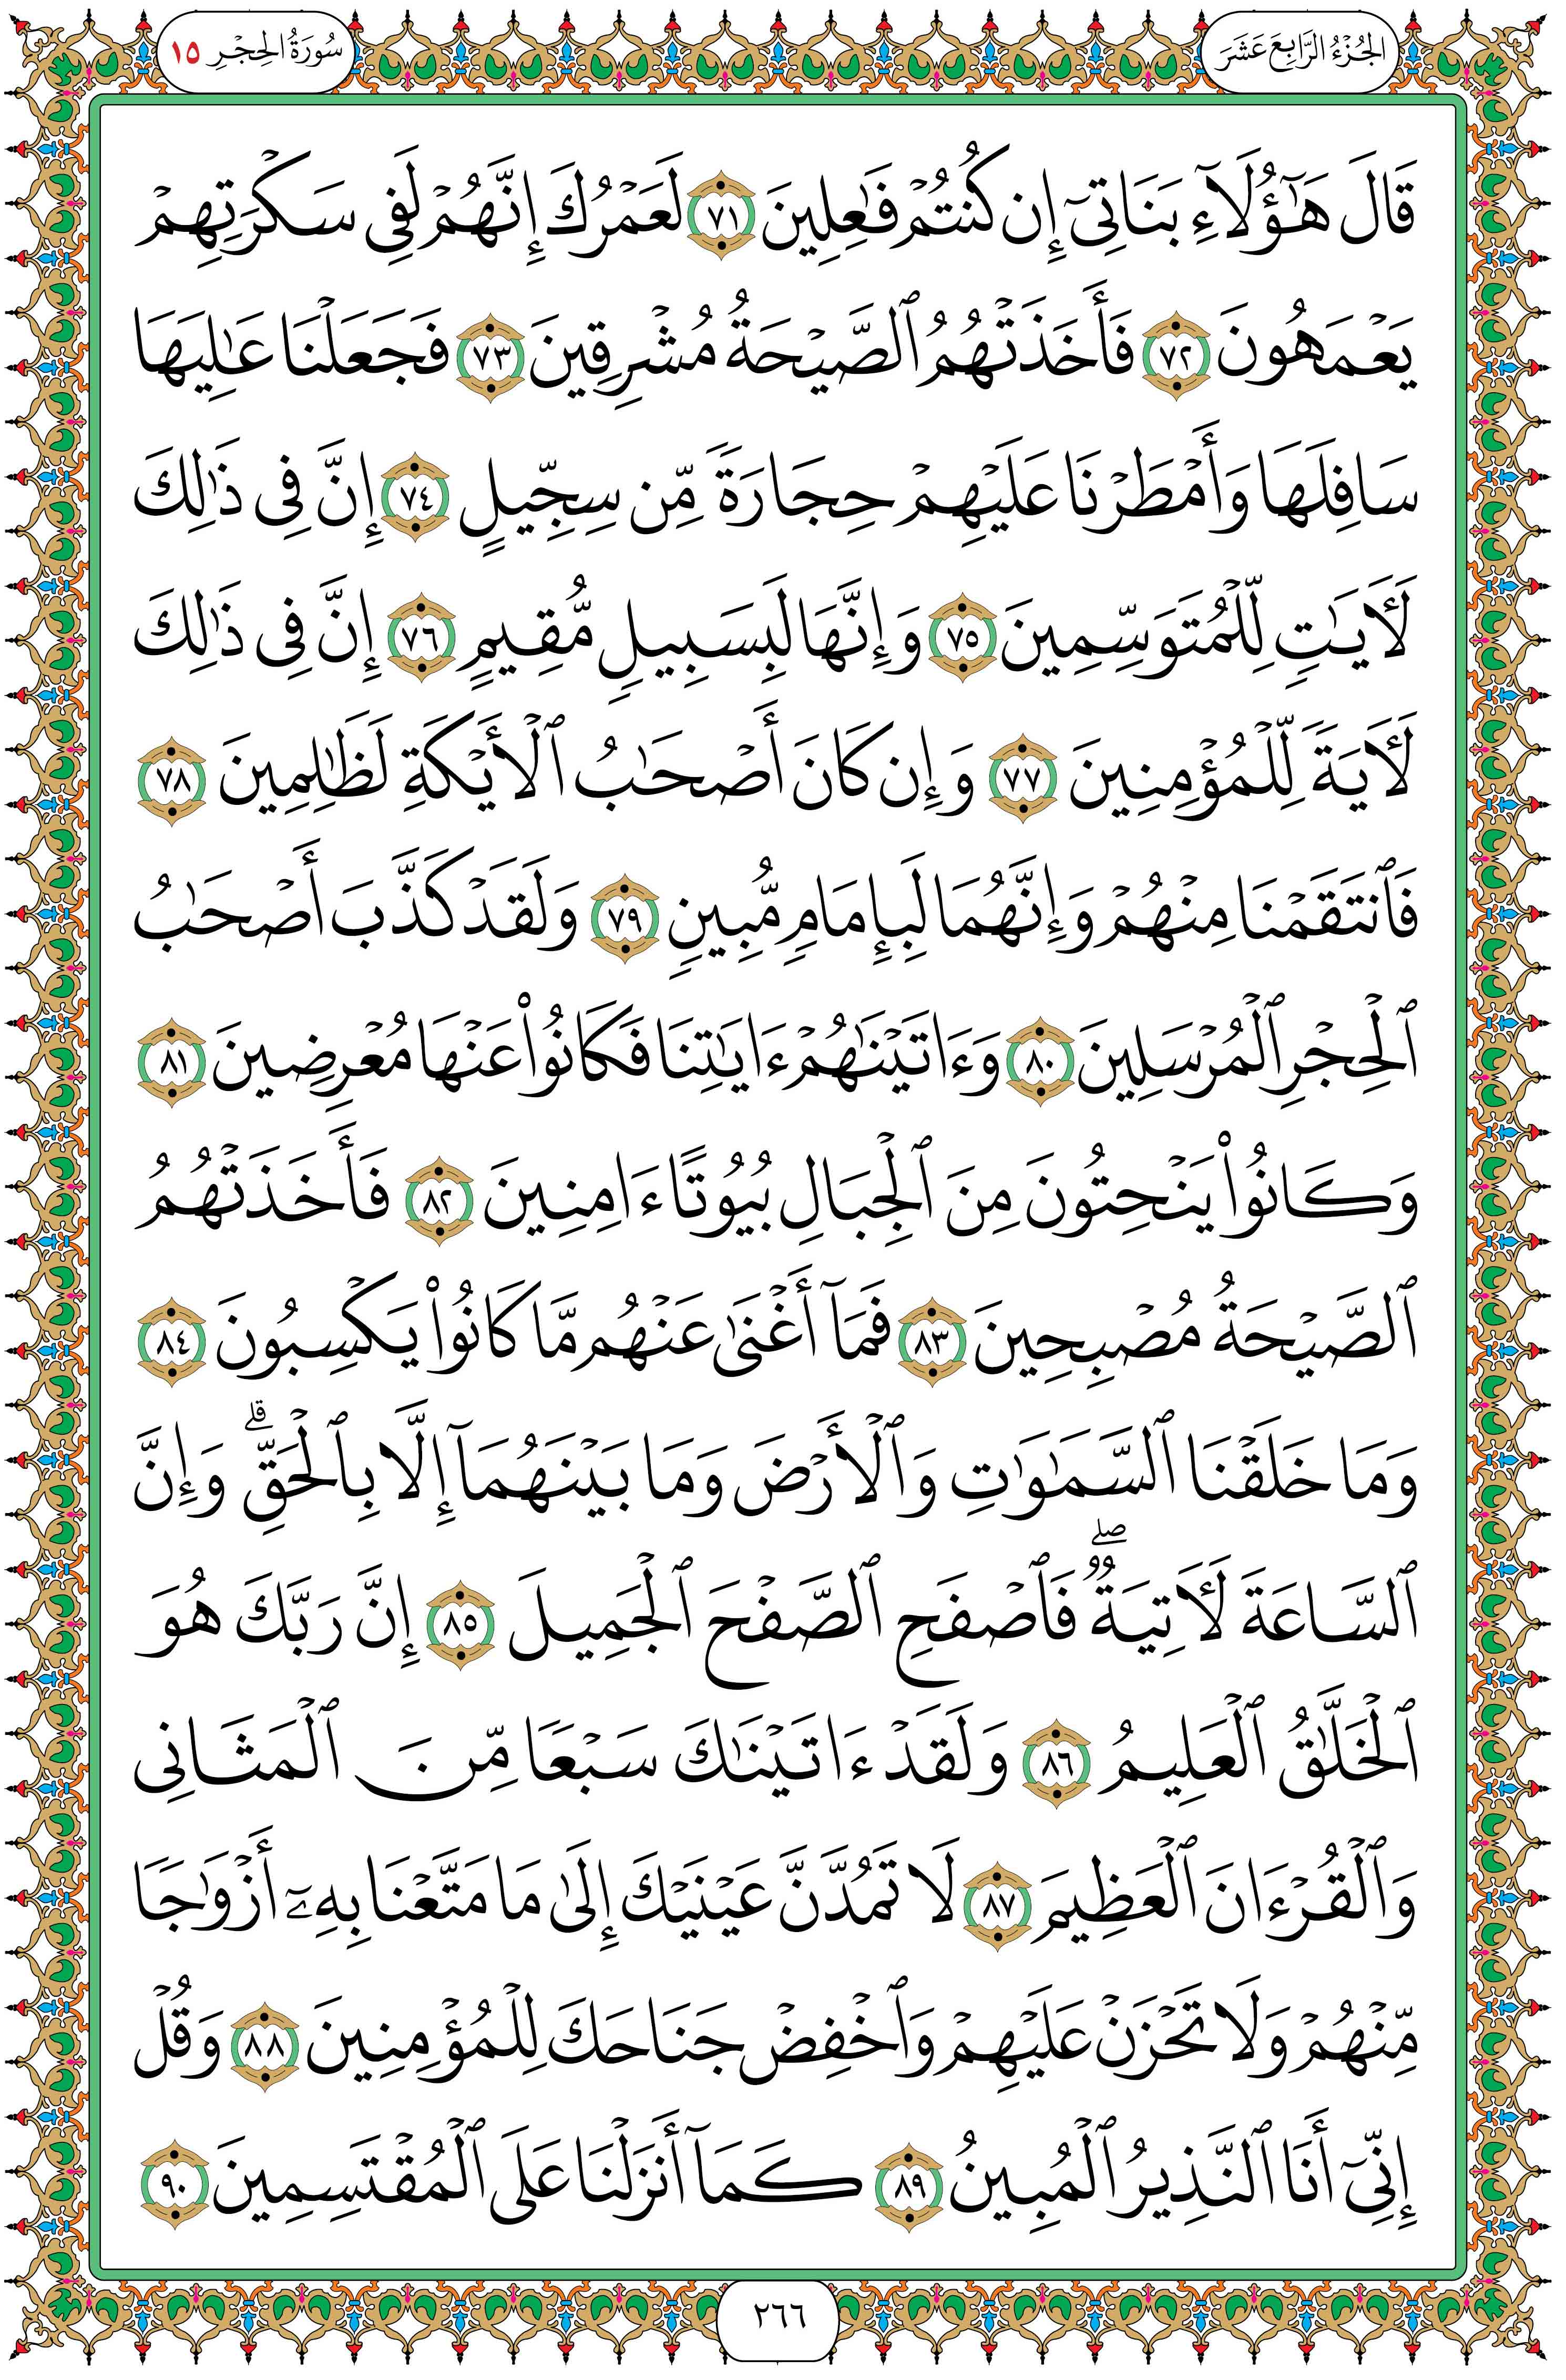 الجُزْءُ الرَّابِعَ عَشَرَ
سُورَةُ الحِجْرِ ١٥
قَالَ هَٰٓؤُلَآءِ بَنَاتِىٓ إِن كُنتُمْ فَٰعِلِينَ ٧١ لَعَمْرُكَ إِنَّهُمْ لَفِى سَكْرَتِهِمْ
يَعْمَهُونَ ٧٢ فَأَخَذَتْهُمُ ٱلصَّيْحَةُ مُشْرِقِينَ ٧٣ فَجَعَلْنَا عَٰلِيَهَا
سَافِلَهَا وَأَمْطَرْنَا عَلَيْهِمْ حِجَارَةً مِّن سِجِّيلٍ ٧٤ إِنَّ فِى ذَٰلِكَ
لَأَيَٰتٍ لِّلْمُتَوَسِّمِينَ ٧٥ وَإِنَّهَا لَبِسَبِيلٍ مُّقِيمٍ ٧٦ إِنَّ فِى ذَٰلِكَ
لَأَيَةً لِّلْمُؤْمِنِينَ ٧٧ وَإِن كَانَ أَصْحَٰبُ ٱلْأَيْكَةِ لَظَٰلِمِينَ ٧٨
فَٱنتَقَمْنَا مِنْهُمْ وَإِنَّهُمَا لَبِإِمَامٍ مُّبِينٍ ٧٩ وَلَقَدْ كَذَّبَ أَصْحَٰبُ
ٱلْحِجْرِ ٱلْمُرْسَلِينَ ٨٠ وَءَاتَيْنَٰهُمْ ءَايَٰتِنَا فَكَانُوا۟ عَنْهَا مُعْرِضِينَ ٨١
وَكَانُوا۟ يَنْحِتُونَ مِنَ ٱلْجِبَالِ بُيُوتًا ءَامِنِينَ ٨٢ فَأَخَذَتْهُمُ
ٱلصَّيْحَةُ مُصْبِحِينَ ٨٣ فَمَآ أَغْنَىٰ عَنْهُم مَّا كَانُوا۟ يَكْسِبُونَ ٨٤
وَمَا خَلَقْنَا ٱلسَّمَٰوَٰتِ وَٱلْأَرْضَ وَمَا بَيْنَهُمَآ إِلَّا بِٱلْحَقِّ ۗ وَإِنَّ
ٱلسَّاعَةَ لَأَتِيَةٌ ۖ فَٱصْفَحِ ٱلصَّفْحَ ٱلْجَمِيلَ ٨٥ إِنَّ رَبَّكَ هُوَ
ٱلْخَلَّٰقُ ٱلْعَلِيمُ ٨٦ وَلَقَدْ ءَاتَيْنَٰكَ سَبْعًا مِّنَ ٱلْمَثَانِى
وَٱلْقُرْءَانَ ٱلْعَظِيمَ ٨٧ لَا تَمُدَّنَّ عَيْنَيْكَ إِلَىٰ مَا مَتَّعْنَا بِهِۦٓ أَزْوَٰجًا
مِّنْهُمْ وَلَا تَحْزَنْ عَلَيْهِمْ وَٱخْفِضْ جَنَاحَكَ لِلْمُؤْمِنِينَ ٨٨ وَقُلْ
إِنِّىٓ أَنَا ٱلنَّذِيرُ ٱلْمُبِينُ ٨٩ كَمَآ أَنزَلْنَا عَلَى ٱلْمُقْتَسِمِينَ ٩٠
٢٦٦